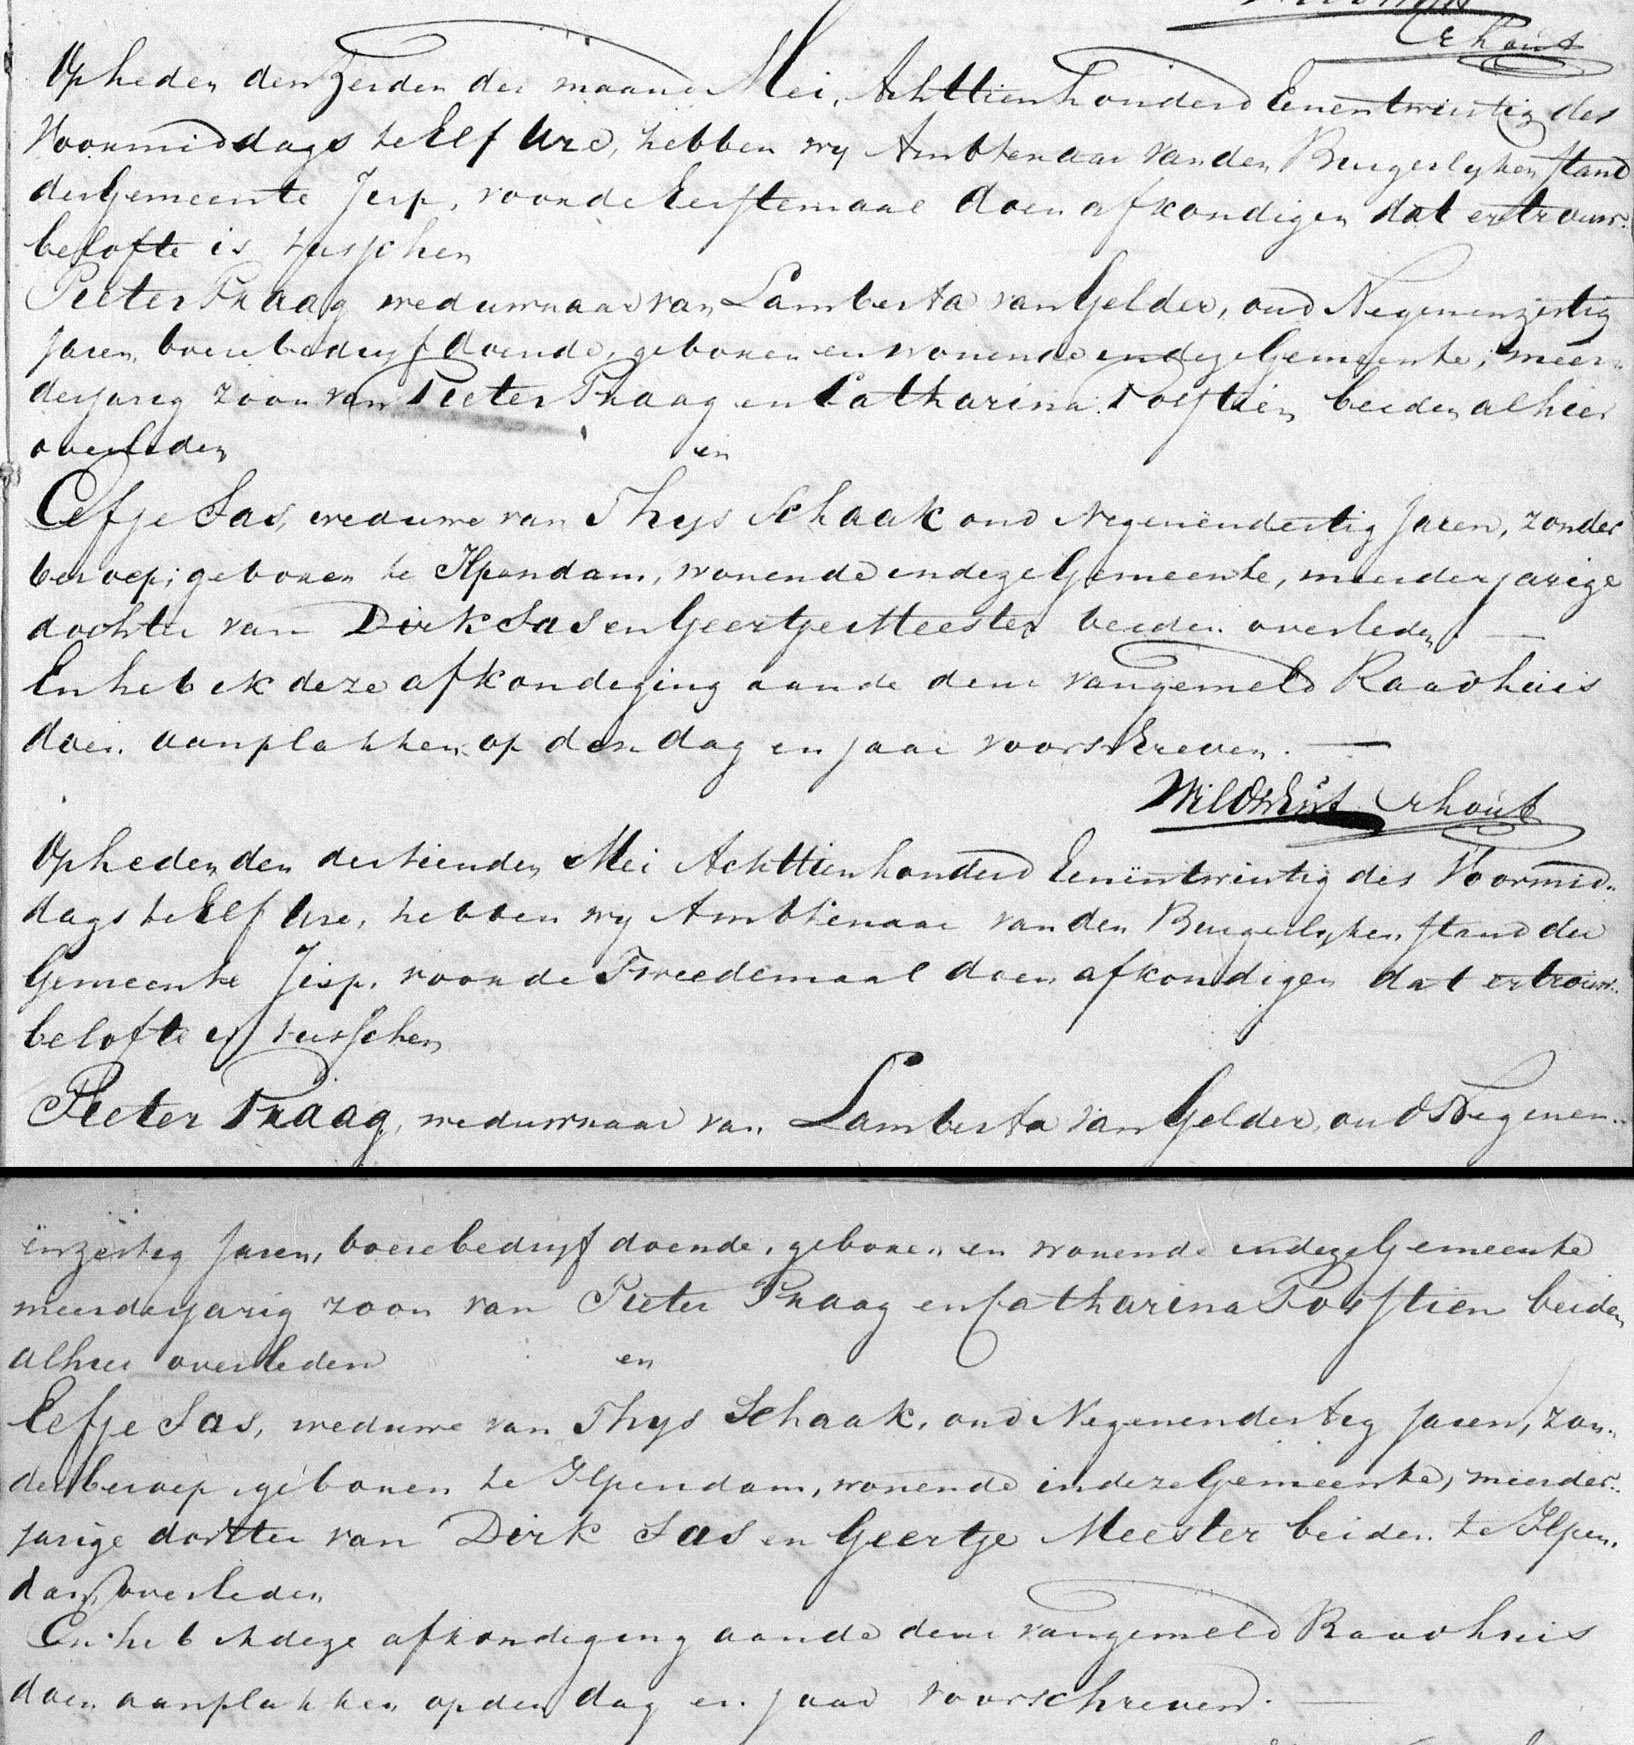 Erhout
Opheden den Zesden der maand Mei, Achttienhonderd Eenentwintig des
Voormiddags te Elf Ure, hebben wy Ambtenaar van den Burgerlyken stand
der Gemeente Jisp, voor de Eerstemaal doen afkondigen dat er trouw-
belofte is tusschen
Pieter Praag weduwnaar van Lamberta van Gelder, oud Negenenzestig
Jaren, boerebedryf doende, geboren en wonende in deze Gemeente, meer-
derjareg zoon van Pieter Praag en Catharina beiden alhier
overleden en
Eefje Sas, weduwe van Thys Schaak oud Negenëndertig Jaren, zonder
beroep, geboren te Ilpendam, wonende in deze Gemeente, meerderjarige
dochter van Dirk Sas en Geertje Meester beiden overleden. —
En heb ik deze afkondeging aan de deur van gemeld Raadhuis
doen aanplakken op den dag en jaar voorschreven. —
Erhout
Opheden den dertienden Mei Achttienhonderd Eenëntwintig des Voormid-
dags te Elf Ure, hebben wy Ambtenaar van den Burgerlyken stand der
Gemeente Jisp, voor de Tweedemaal doen afkondigen dat er trouw-
belofte is tusschen
Pieter Praag, weduwnaar van Lamberta van Gelder, oud Negenen-
ënzesteg Jaren, boerebedryf doende, geboren en wonende in deze Gemeente
meerderjarig zoon van Pieter Praag en Catharina beiden
alhier overleden en
Eefje Sas, weduwe van Thys Schaak, oud Negenenderteg Jaren, zon-
der beroep, geboren te Ilpendam, wonende in deze Gemeente, meerder-
jarige dochter van Dirk Sas en Geertje Meester beiden te Ilpen-
dam overleden
En heb ik deze afkondeging aan de deur van gemeld Raadhuis
doen aanplakken op den dag en jaar voorschreven. —